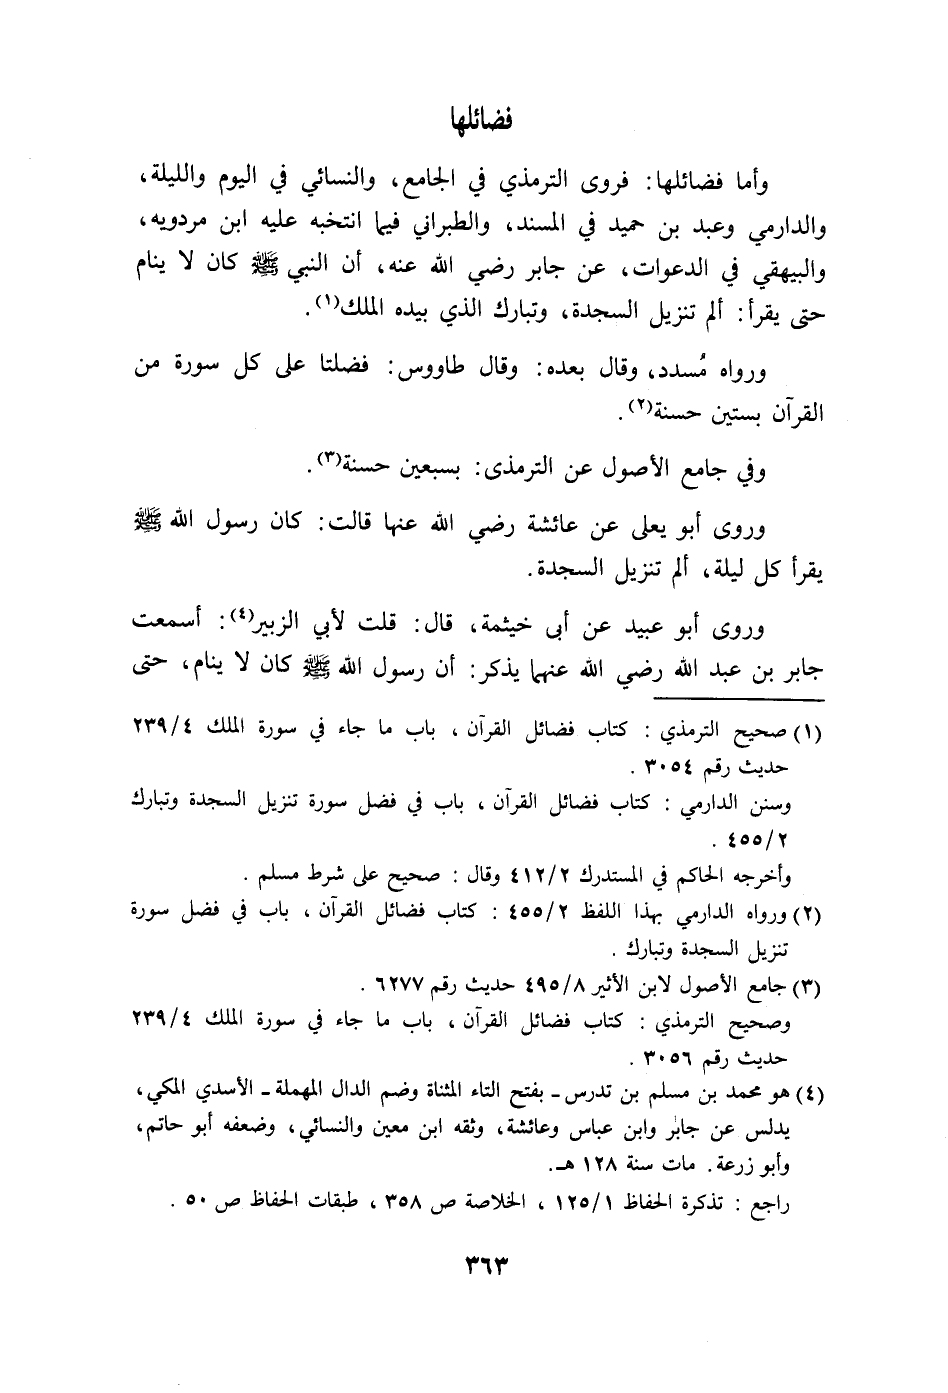 فضائلها
وأما فضائلها: فروى الترمذي في الجامع، والنسائي في اليوم والليلة،
والدارمي وعبد بن حميد في المسند، والطبراني فيما انتخبه عليه ابن مردويه،
والبيهقي في الدعوات، عن جابر رضي الله عنه، أن النبي ﷺ كان لا ينام
حتى يقرأ: ألم تنزيل السجدة، وتبارك الذي بيده الملك(١).
ورواه مُسدد، وقال بعده: وقال طاووس: فضلتا على كل سورة من
القرآن بستين حسنة(٢).
وفي جامع الأصول عن الترمذى: بسبعين حسنة(٣).
وروى أبو يعلى عن عائشة رضي الله عنها قالت: كان رسول الله ﷺ
يقرأ كل ليلة، ألم تنزيل السجدة.
وروى أبو عبيد عن أبى خيثمة، قال: قلت لأبي الزبير(٤): أسمعت
جابر بن عبد الله رضي الله عنهما يذكر: أن رسول الله ﷺ كان لا ينام، حتى
(١) صحيح الترمذي : كتاب فضائل القرآن ، باب ما جاء في سورة الملك ٢٣٩/٤
حديث رقم ٣٠٥٤ .
وسنن الدارمي : كتاب فضائل القرآن ، باب في فضل سورة تنزيل السجدة وتبارك
٤٥٥/٢ .
وأخرجه الحاكم في المستدرك ٤١٢/٢ وقال : صحيح على شرط مسلم .
(٢) ورواه الدارمي بهذا اللفظ ٤٥٥/٢ : كتاب فضائل القرآن ، باب في فضل سورة
تنزيل السجدة وتبارك .
(٣) جامع الأصول لابن الأثير ٤٩٥/٨ حديث رقم ٦٢٧٧ .
وصحيح الترمذي : كتاب فضائل القرآن ، باب ما جاء في سورة الملك ٢٣٩/٤
حديث رقم ٣٠٥٦ .
(٤) هو محمد بن مسلم بن تدرس ـ بفتح التاء المثناة وضم الدال المهملة ـ الأسدي المكي ،
يدلس عن جابر وابن عباس وعائشة، وثقه ابن معين والنسائي، وضعفه أبو حاتم،
وأبو زرعة. مات سنة ١٢٨ هـ.
راجع : تذكرة الحفاظ ١٢٥/١ ، الخلاصة ص ٣٥٨ ، طبقات الحفاظ ص ٥٠ .
٣٦٣